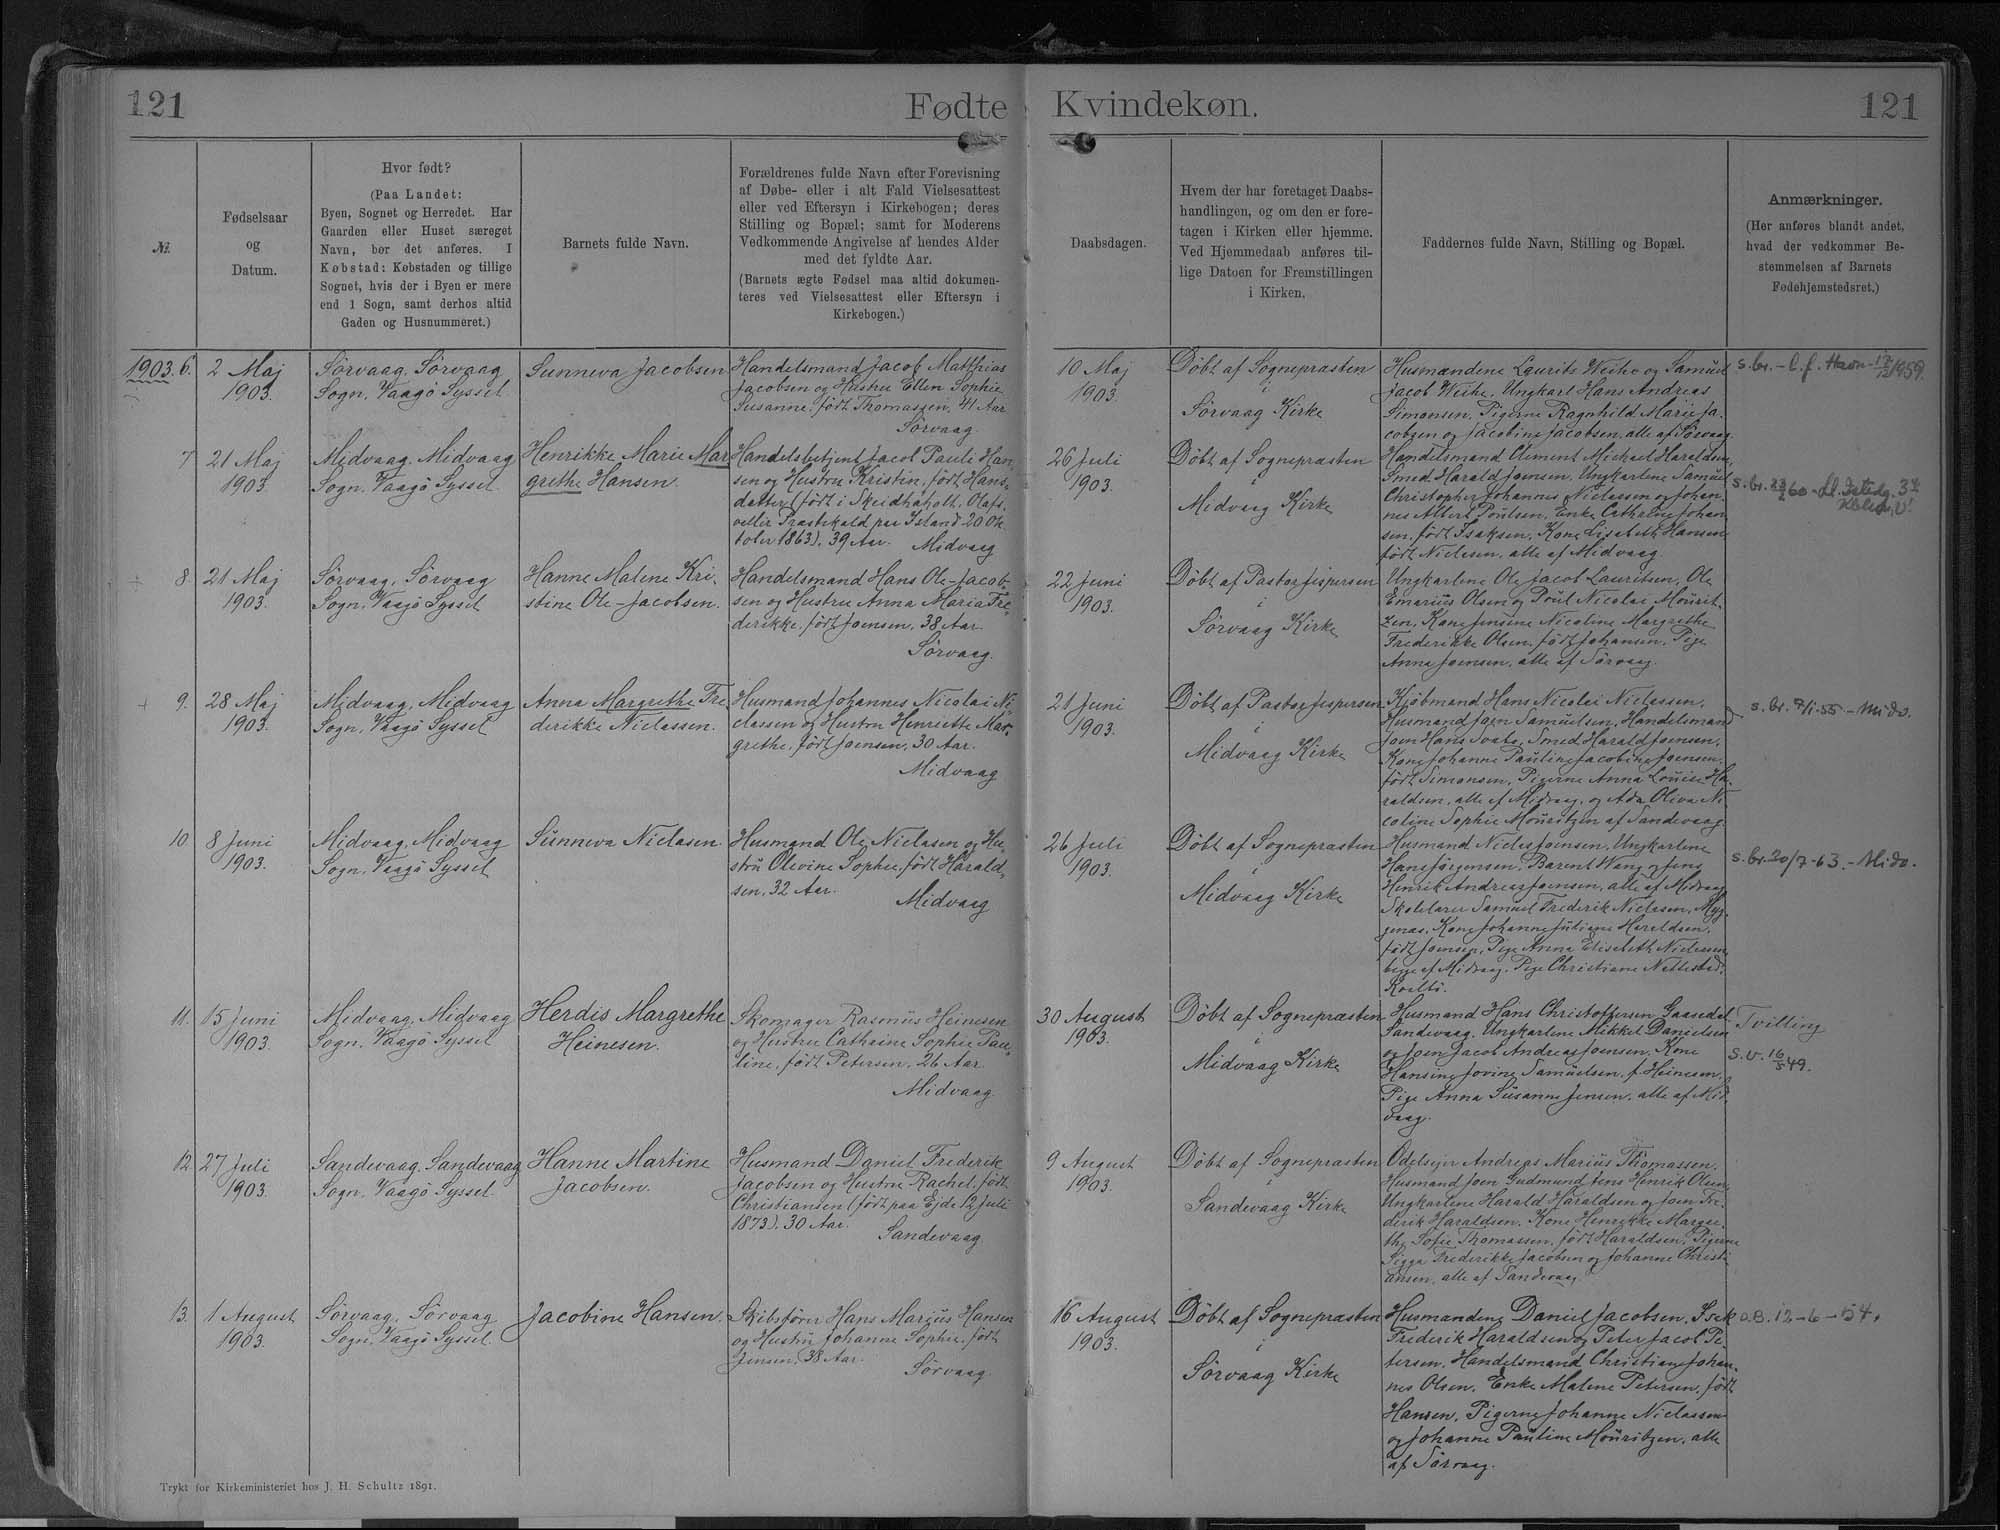 121
Fødte
Kvindekøn.
121
№
Fødselsaar
og
Datum.
Hvor født?
(Paa Landet:
Byen, Sognet og Herredet. Har
Gaarden eller Huset særeget
Navn, bør det anføres. I
Købstad: Købstaden og tillige
Sognet, hvis der i Byen er mere
end 1 Sogn, samt derhos altid
Gaden og Husnummeret.)
Barnets fulde Navn.
Forældrenes fulde Navn efter Forevisning
af Døbe- eller i alt Fald Vielsesattest
eller ved Eftersyn i Kirkebogen; deres
Stilling og Bopæl; samt for Moderens
Vedkommende Angivelse af hendes Alder
med det fyldte Aar.
(Barnets ægte Fødsel maa altid dokumen-
teres ved Vielsesattest eller Eftersyn i
Kirkebogen.)
Daabsdagen.
Hvem der har foretaget Daabs-
handlingen, og om den er fore-
tagen i Kirken eller hjemme.
Ved Hjemmedaab anføres til-
lige Datoen for Fremstillingen
i Kirken.
Faddernes fulde Navn, Stilling og Bopæl.
Anmærkninger.
(Her anføres blandt andet,
hvad der vedkommer Be-
stemmelsen af Barnets
Fødehjemstedsret.)
1903. 6.
2 Maj
1903.
Sørvaag, Sørvaag
Sogn, Vaagø Syssel
Sunneva Jacobsen
Handelsmand Jacob Matthias
Jacobsen og Hustru Ellen Sophie
Susanne, født Thomassen, 41 Aar
Sørvaag
10 Maj
1903.
Døbt af Sognepræsten
i
Sørvaag Kirke
Husmændene Laurits Weihe og Samuel
Jacob Weihe, Ungkarl Hans Andreas
Simonsen, Pigerne Ragnhild Marie Ja-
cobsen og Jacobine Jacobsen, alle af Sørvaag
7
21 Maj
1903.
Midvaag, Midvaag
Sogn, Vaagø Syssel
Henrikke Marie Mar
grethe Hansen
Handelsbetjent Jacob Pauli Han-
sen og Hustru Kristin, født Hans-
datter (født i Skeidhaholt, Olafs-
vellir Præstekald paa Island 20 Ok-
tober 1863), 39 Aar.
Midvaag
26 Juli
1903.
Døbt af Sognepræsten
i
Midvaag Kirke
Handelsmand Clement Michael Haraldsen,
Smed Harald Joensen, Ungkarlene Samuel
Christopher Johannes Niclassen og Johan-
nes Albert Poulsen, Enke Cathrine Johan
sen, født Isaksen, Kone Lisabeth Hansen
født Niclasen, alle af Midvaag.
8.
21 Maj
1903.
Sørvaag, Sørvaag
Sogn, Vaagø Syssel
Hanne Malene Kri-
stine Ole-Jacobsen.
Handelsmand Hans Ole-Jacob-
sen og Hustru Anna Maria Fre-
derikke, født Joensen, 38 Aar.
Sørvaag.
22 Juni
1903.
Døbt af Pastor Jespersen
i
Sørvaag Kirke
Ungkarlene Ole Jacob Lauritsen, Ole
Emarius Olsen og Poul Nicolai Mourit-
zen, Kone Jensine Nicoline Margrethe
Frederikke Olsen, født Johansen, Pige
Anna Joensen, alle af Sørvaag.
9.
28 Maj
1903.
Midvaag, Midvaag
Sogn, Vaagø Syssel
Anna Margrethe Fre
derikke Niclassen.
Husmand Johannes Nicolai Ni-
classen og Hustru Henriette Mar-
grethe, født Joensen, 30 Aar.
Midvaag
21 Juni
1903.
Døbt af Pastor Jespersen
i
Midvaag Kirke
Kjøbmand Hans Nicolai Niclassen,
Husmand Joen Samuelsen, Handelsmand
Joen Hans, Smed Harald Joensen,
Kone Johanne Pauline Jacobine Joensen,
født Simonsen, Pigerne Anna Louise Ha-
raldsen, alle af Midvaag, og Ada Oliva Ni-
coline Sophie Mouritzen af Sandevaag.
s. br. 7/1-55 - Mido.
10
8 Juni
1903.
Midvaag, Midvaag
Sogn, Vaagø Syssel
Sunneva Niclasen.
Husmand Ole Niclasen og Hu-
stru Olevine Sophie, født Harald-
sen, 32 Aar.
Midvaag
26 Juli
1903.
Døbt af Sognepræsten
i
Midvaag Kirke
Husmand Niclas Joensen, Ungkarlene
Hans Jørgensen, Barent Wang og Jens
Henrik Andreas Joensen, alle af Midvaag
Skolelærer Samuel Frederik Niclasen, Myg-
genæs, Kone Johanne Juliane Haraldsen,
født Joensen, Pige Anna Elisabeth Niclasen
begge af Midvaag, Pige Christiane Nattestad,
Kvalbø.
s. br. 20/7-63. - Mido.
11.
15 Juni
1903.
Midvaag, Midvaag
Sogn, Vaagø Syssel
Herdis Margrethe
Heinesen.
Skomager Rasmus Heinesen
og Hustru Cathrine Sophie Pau-
line, født Petersen, 26 Aar
Midvaag.
30 August
1903.
Døbt af Sognepræsten
i
Midvaag Kirke
Husmand Hans Christoffersen Gaasedal
Sandevaag, Ungkarlene Mikkel Danielsen
og Joen Jacob Andreas Joensen, Kone
Hansine Jovine Samuelsen, f. Heinesen,
Pige Anna Susanne Jensen, alle af Mid-
vaag.
Tvilling
s. v. 16/5 49.
12.
27 Juli
1903.
Sandevaag, Sandevaag
Sogn, Vaagø Syssel
Hanne Martine
Jacobsen.
Husmand Daniel Frederik
Jacobsen og Hustru Rachel, født
Christiansen (født paa Ejde 12 Juli
1873). 30 Aar.
Sandevaag
9 August
1903.
Døbt af Sognepræsten
i
Sandevaag Kirke
Odelsejer Andreas Marius Thomassen,
Husmand Joen Gudmund Jens Henrik Olsen,
Ungkarlene Harald Haraldsen og Joen Fre-
derik Haraldsen, Kone Henrikke Margre-
the Sofie Thomassen, født Haraldsen, Pigerne
Sigga Frederikke Jacobsen og Johanne Christi
ansen, alle af Sandevaag.
13.
1 August
1903.
Sørvaag, Sørvaag
Sogn, Vaagø Syssel.
Jacobine Hansen.
Skibsfører Hans Marius Hansen
og Hustru Johanne Sophie, født
Jensen, 38 Aar.
Sørvaag
16 August
1903.
Døbt af Sognepræsten
i
Sørvaag Kirke
Husmændene Daniel Jacobsen, Isak
Frederik Haraldsen og Peter Jacob Pe
tersen, Handelsmand Christian Johan-
nes Olsen, Enke Malene Petersen, født
Hansen, Pigerne Johanne Niclassen
og Johanne Pauline Mouritzen, alle
af Sørvaag.
a.B. 12-6-54.
Trykt for Kirkeministeriet hos J. H. Schultz 1891.